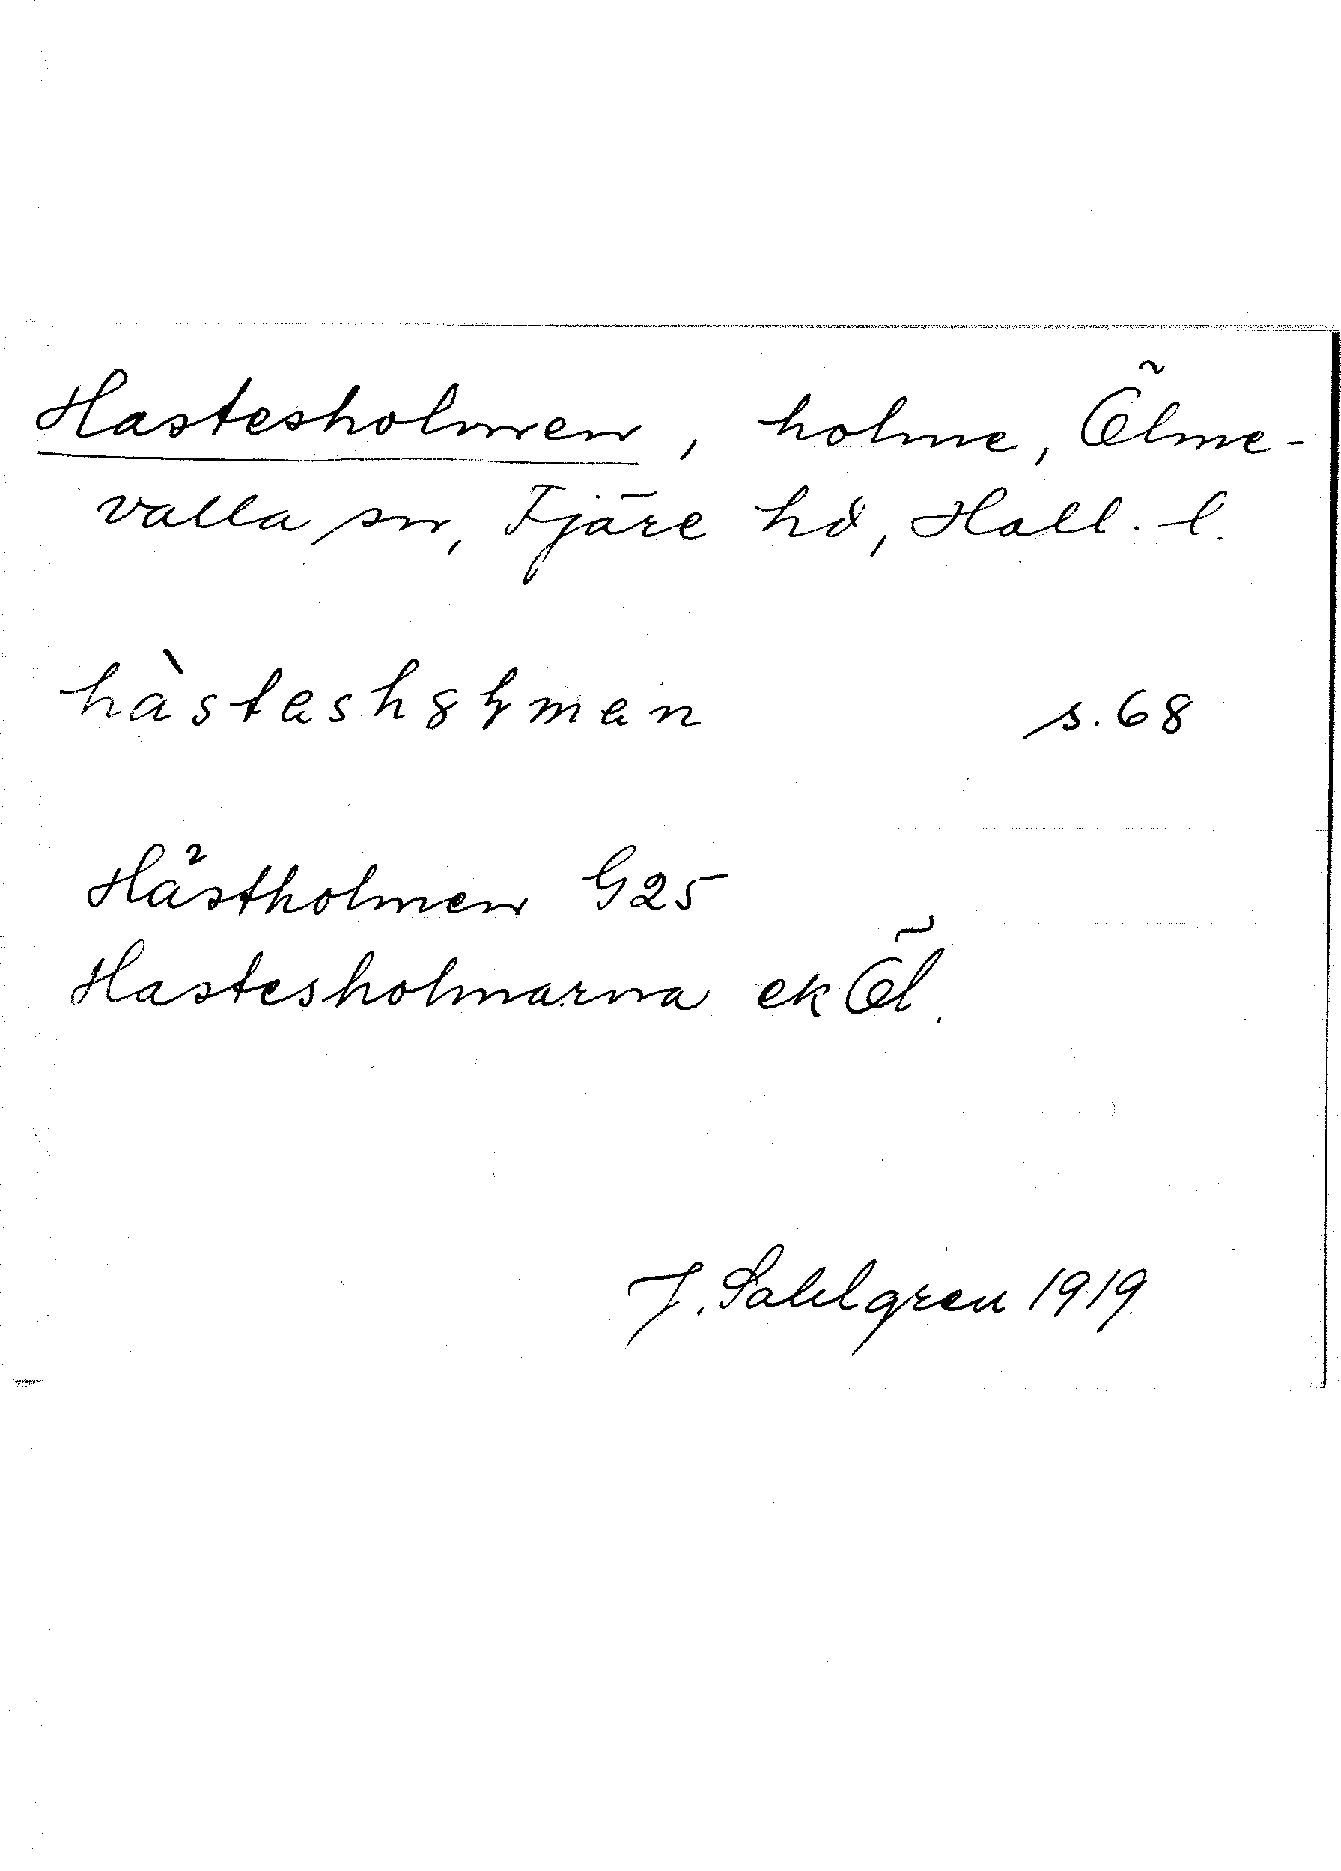 Hastesholmen, holme, Ölme-
valla sn, Fjäre hd, Hall. l.
hàstashȣɭman s. 68
Hästholmen G25
Hastesholmarna ek Öl.
J. Sahlgren 1919